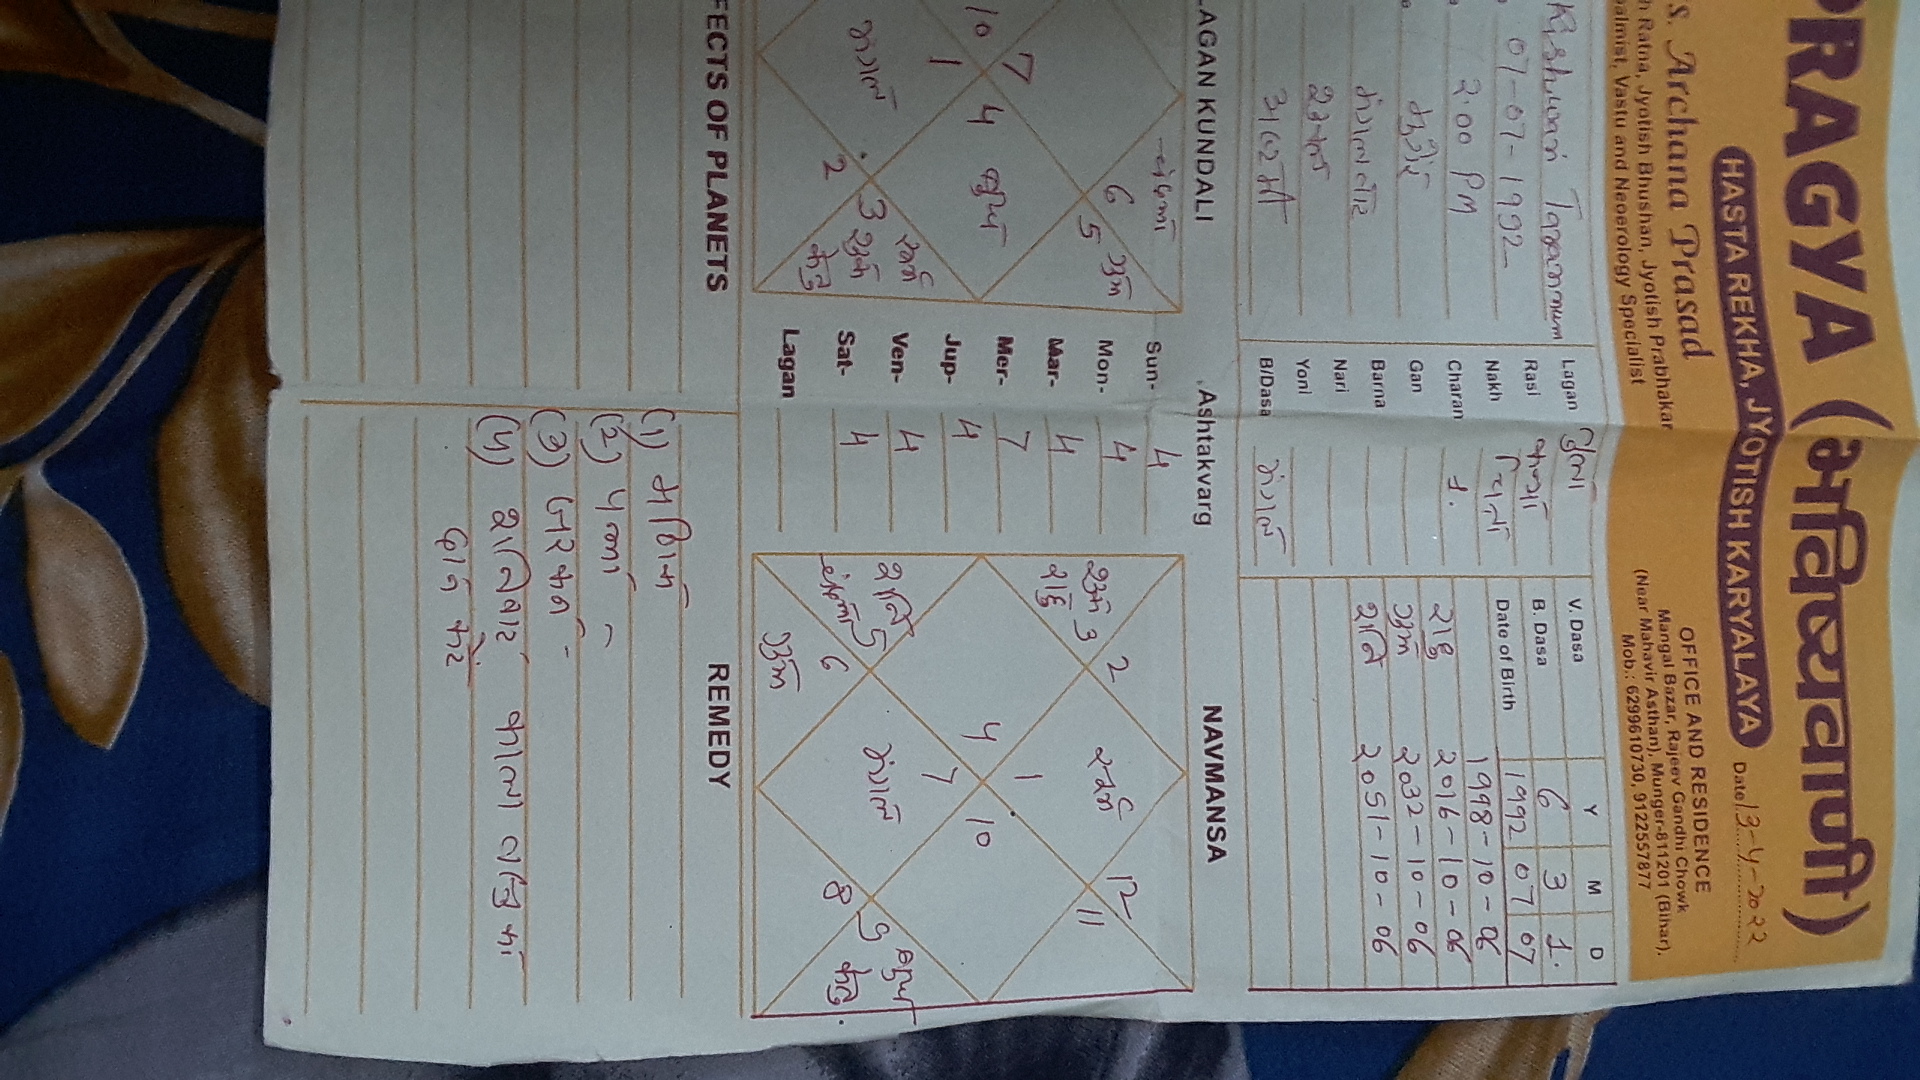 PRAGYA (भविष्यवाणी)
HASTA REKHA, JYOTISH KARYALAYA
Date 13-4-2022
s. Archana Prasad
h Ratna, Jyotish Bhushan, Jyotish Prabhakar
palmist, Vastu and Neoerology Specialist
OFFICE AND RESIDENCE
Mangal Bazar, Rajeev Gandhi Chowk
(Near Mahavir Asthan), Munger-811201 (Bihar).
Mob.: 6299610730, 9122557877
Kishwari Tarannum
07-07-1992
2.00 PM
मुंगेर
मंगलवार
अष्टमी
Lagan तुला
Rasi कन्या
Nakh चित्रा
Charan 1.
Gan
Barna
Nari
Yoni
B/Dasa मंगल
Y M D
V. Dasa 6 3 1.
B. Dasa
Date of Birth 1992 07 07
1998-10-06
राहु 2016-10-06
गुरू 2032-10-06
शनि 2051-10-06
LAGAN KUNDALI
चंद्रमा
6 गुरू
5
7
10 4 बुध
1
मंगल
सूर्य
3 शुक्र
2 केतु
Ashtakvarg
Sun- 4
Mon- 4
Mar- 4
Mer- 7
Jup- 4
Ven- 4
Sat- 4
Lagan
NAVMANSA
2 सूर्य 12
शुक्र 3 11
राहु
1
4 10
7
शनि 5 मंगल 9 बुध
चंद्रमा 6 8 केतु
गुरू
FECTS OF PLANETS
REMEDY
(1) मणिक
(2) पन्ना -
(3) जरकन -
(4) शनिवार काला वस्तु का
दान करें